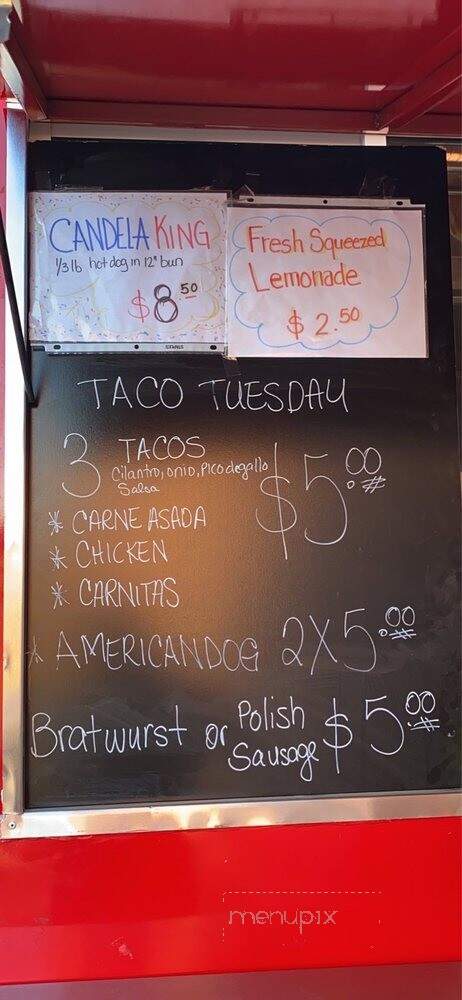 CANDELA KING
1/3 lb hot dog in 12" bun
$8.50
Fresh Squeezed
Lemonade
$2.50
TACO TUESDAY
3 TACOS
Cilantro, onio, Pico de gallo
Salsa
$5.00
* CARNE ASADA
* CHICKEN
* CARNITAS
* AMERICANDOG 2X5.00
Bratwurst or Polish
Sausage $5.00
menupix